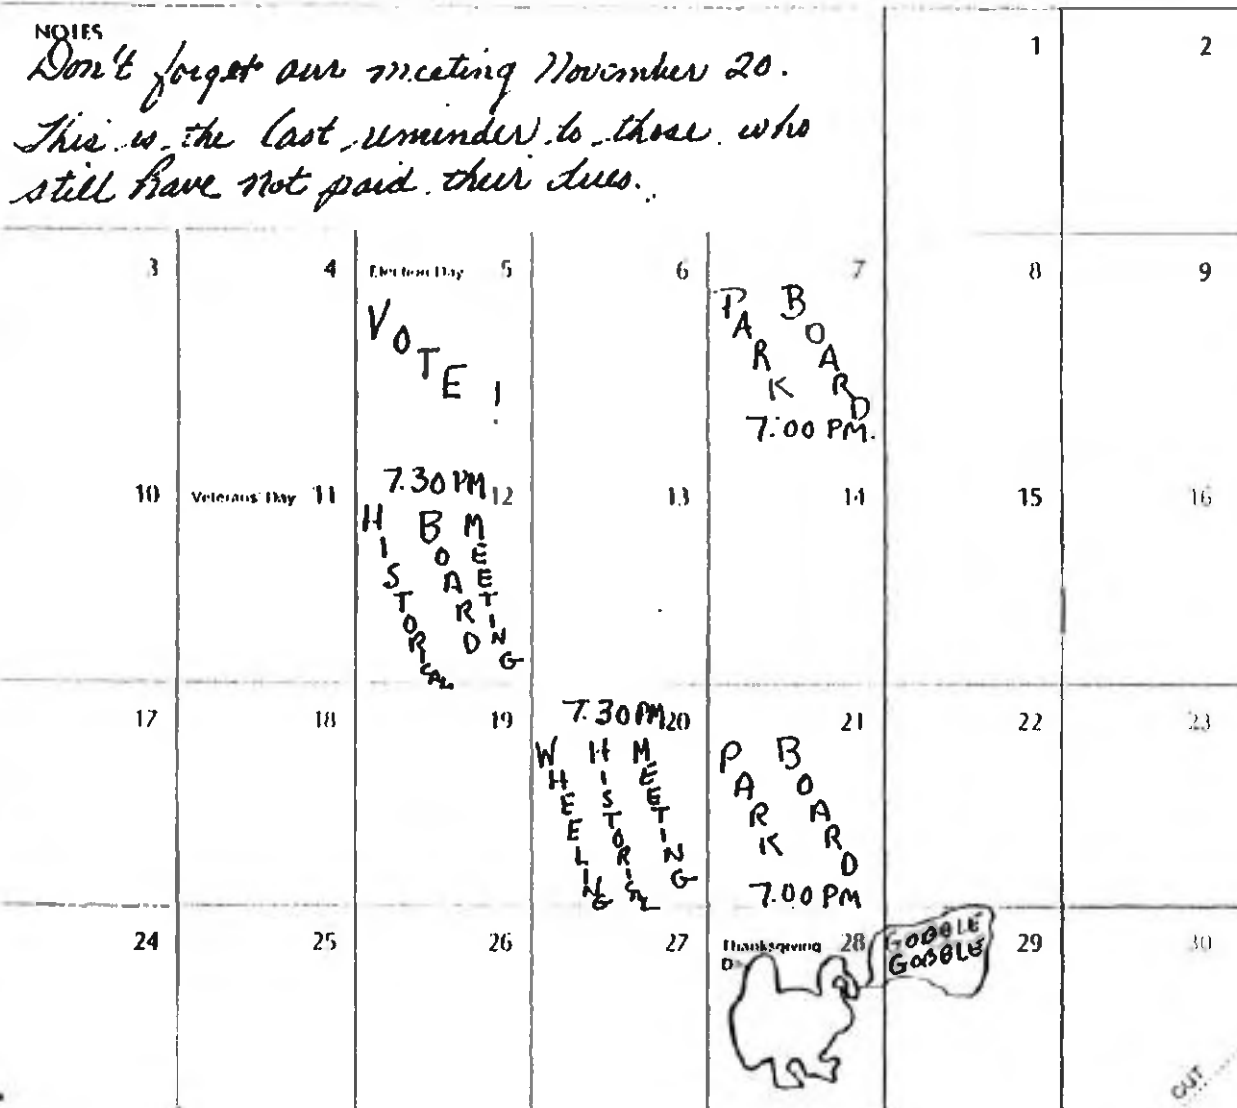 NOTES
Don't forget our meeting November 20.
This is the last reminder to those who
still have not paid their dues.
1 2
3 4 Election Day 5 6 7 8 9
VOTE!
PARK BOARD
7:00 PM.
10 Veterans' Day 11 12 13 14 15 16
7.30 PM
HISTORICAL BOARD MEETING
17 18 19 20 21 22 23
7.30 PM
WHEELING HISTORICAL MEETING
PARK BOARD
7:00 PM
24 25 26 27 Thanksgiving 28 29 30
D
GOBBLE
GOBBLE
CUT